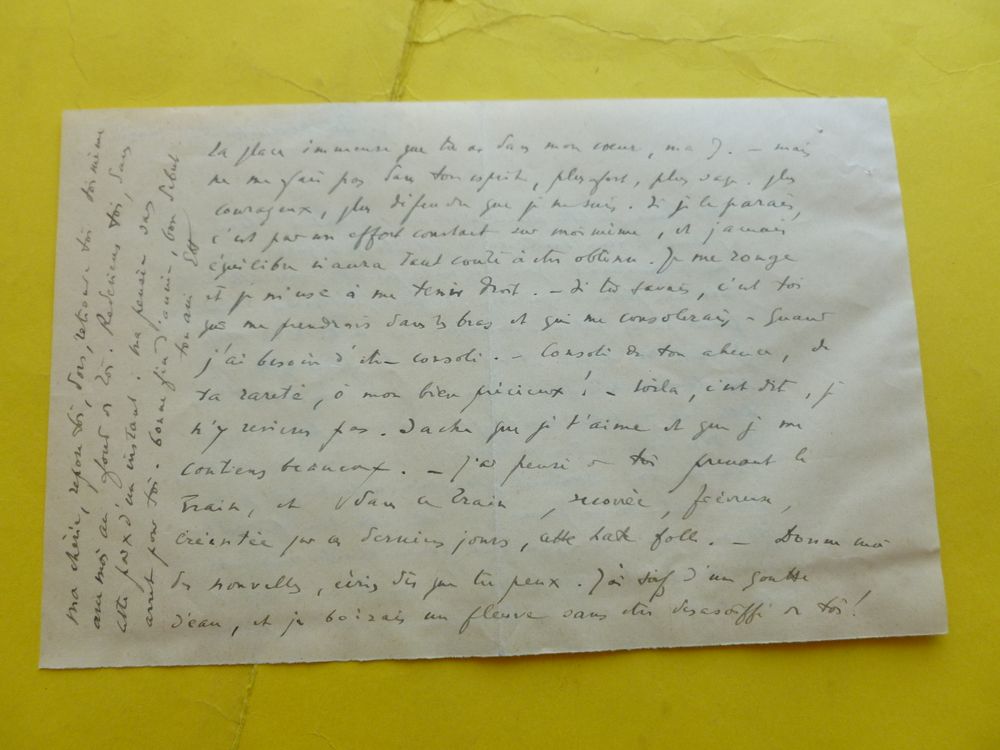 la place immense que tu as dans mon cœur, ma J. – mais
ne me fais pas dans ton esprit, plus fort, plus sage, plus
courageux, plus défendu que je ne suis. Si je le parais,
c'est par un effort constant sur moi même, et jamais
équilibre n'aura tant coûté à être obtenu. Je me ronge
et je m'use à me tenir droit. – Si tu savais, c'est toi
qui me prendrais dans tes bras et qui me consolerais – quand
j'ai besoin d'être consolé. – Consolé de ton absence, de
ta rareté, ô mon bien précieux ! – Voilà, c'est dit, je
n'y reviens pas. Sache que je t'aime et que je me
contiens beaucoup. – J'ai pensé à toi prenant le
train, et dans ce train, fiévreuse,
éreintée par ces derniers jours, cette hâte folle. – Donne moi
des nouvelles, écris dès que tu peux. J'ai soif d'une goutte
d'eau, et je boirais un fleuve sans être désassoiffé de toi !
ma chérie, repose toi, dors, retrouve toi toi même
avec moi au fond de toi. Redeviens toi, sans
cette paix d'un instant : ma pensée va
avant pour toi. bonne fin d'année, bon début.
ton ami